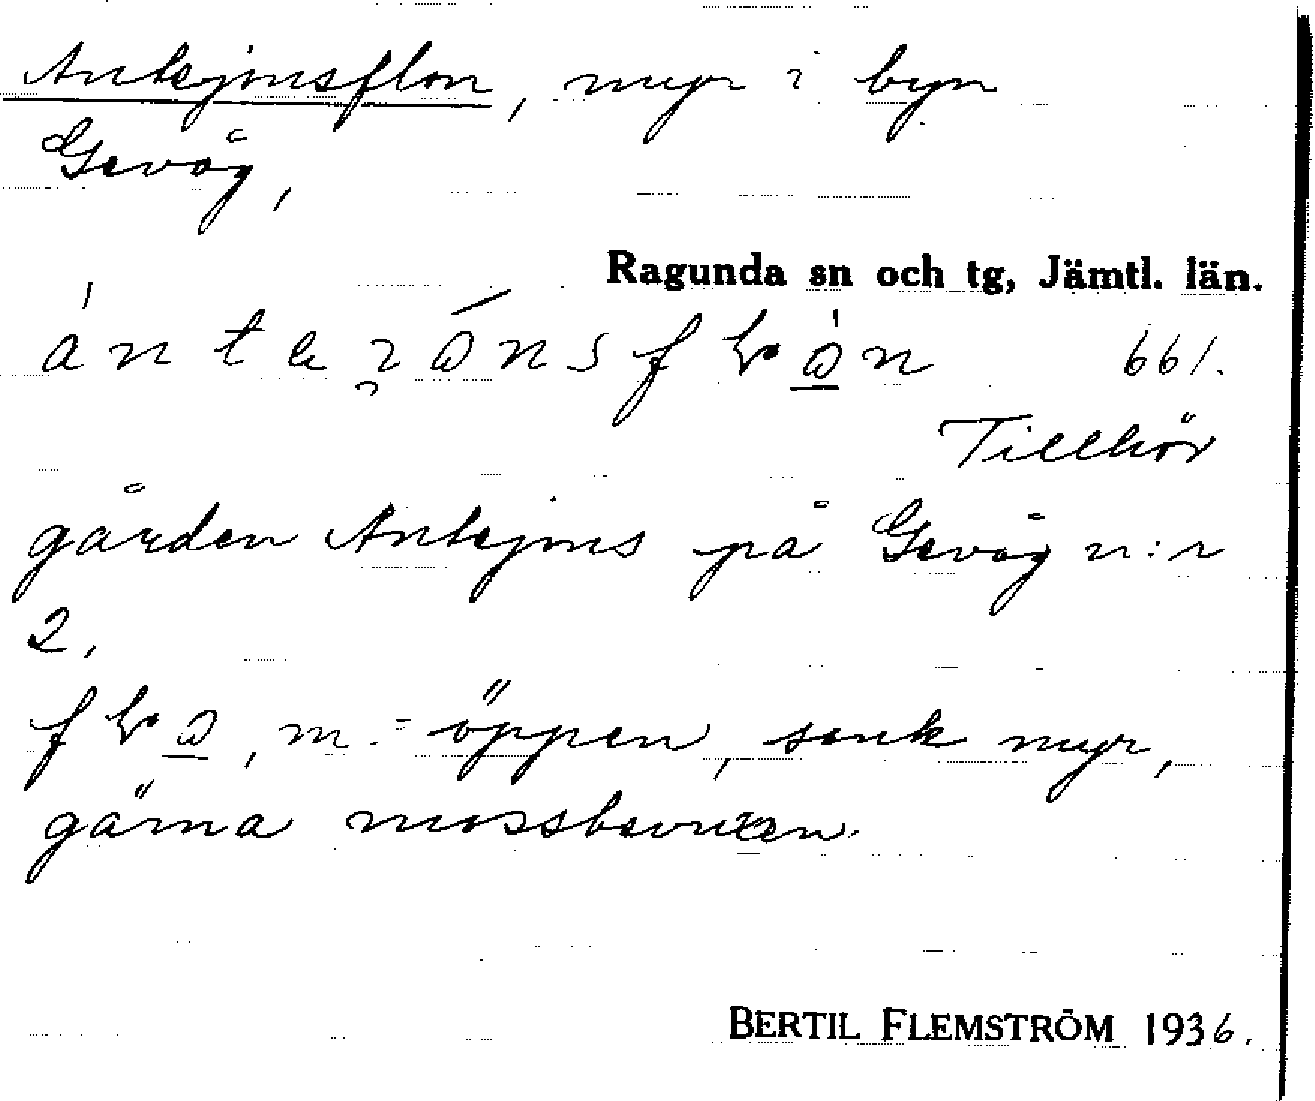 Antejonsflon, myr i byn
Gevåg,
Ragunda sn och tg, Jämtl. län.
661.
Tillhör
gården Antejons på Gevåg n:r
2,
m. = öppen, sank myr,
gärna mossbevuxen.
BERTIL FLEMSTRÖM 1936.